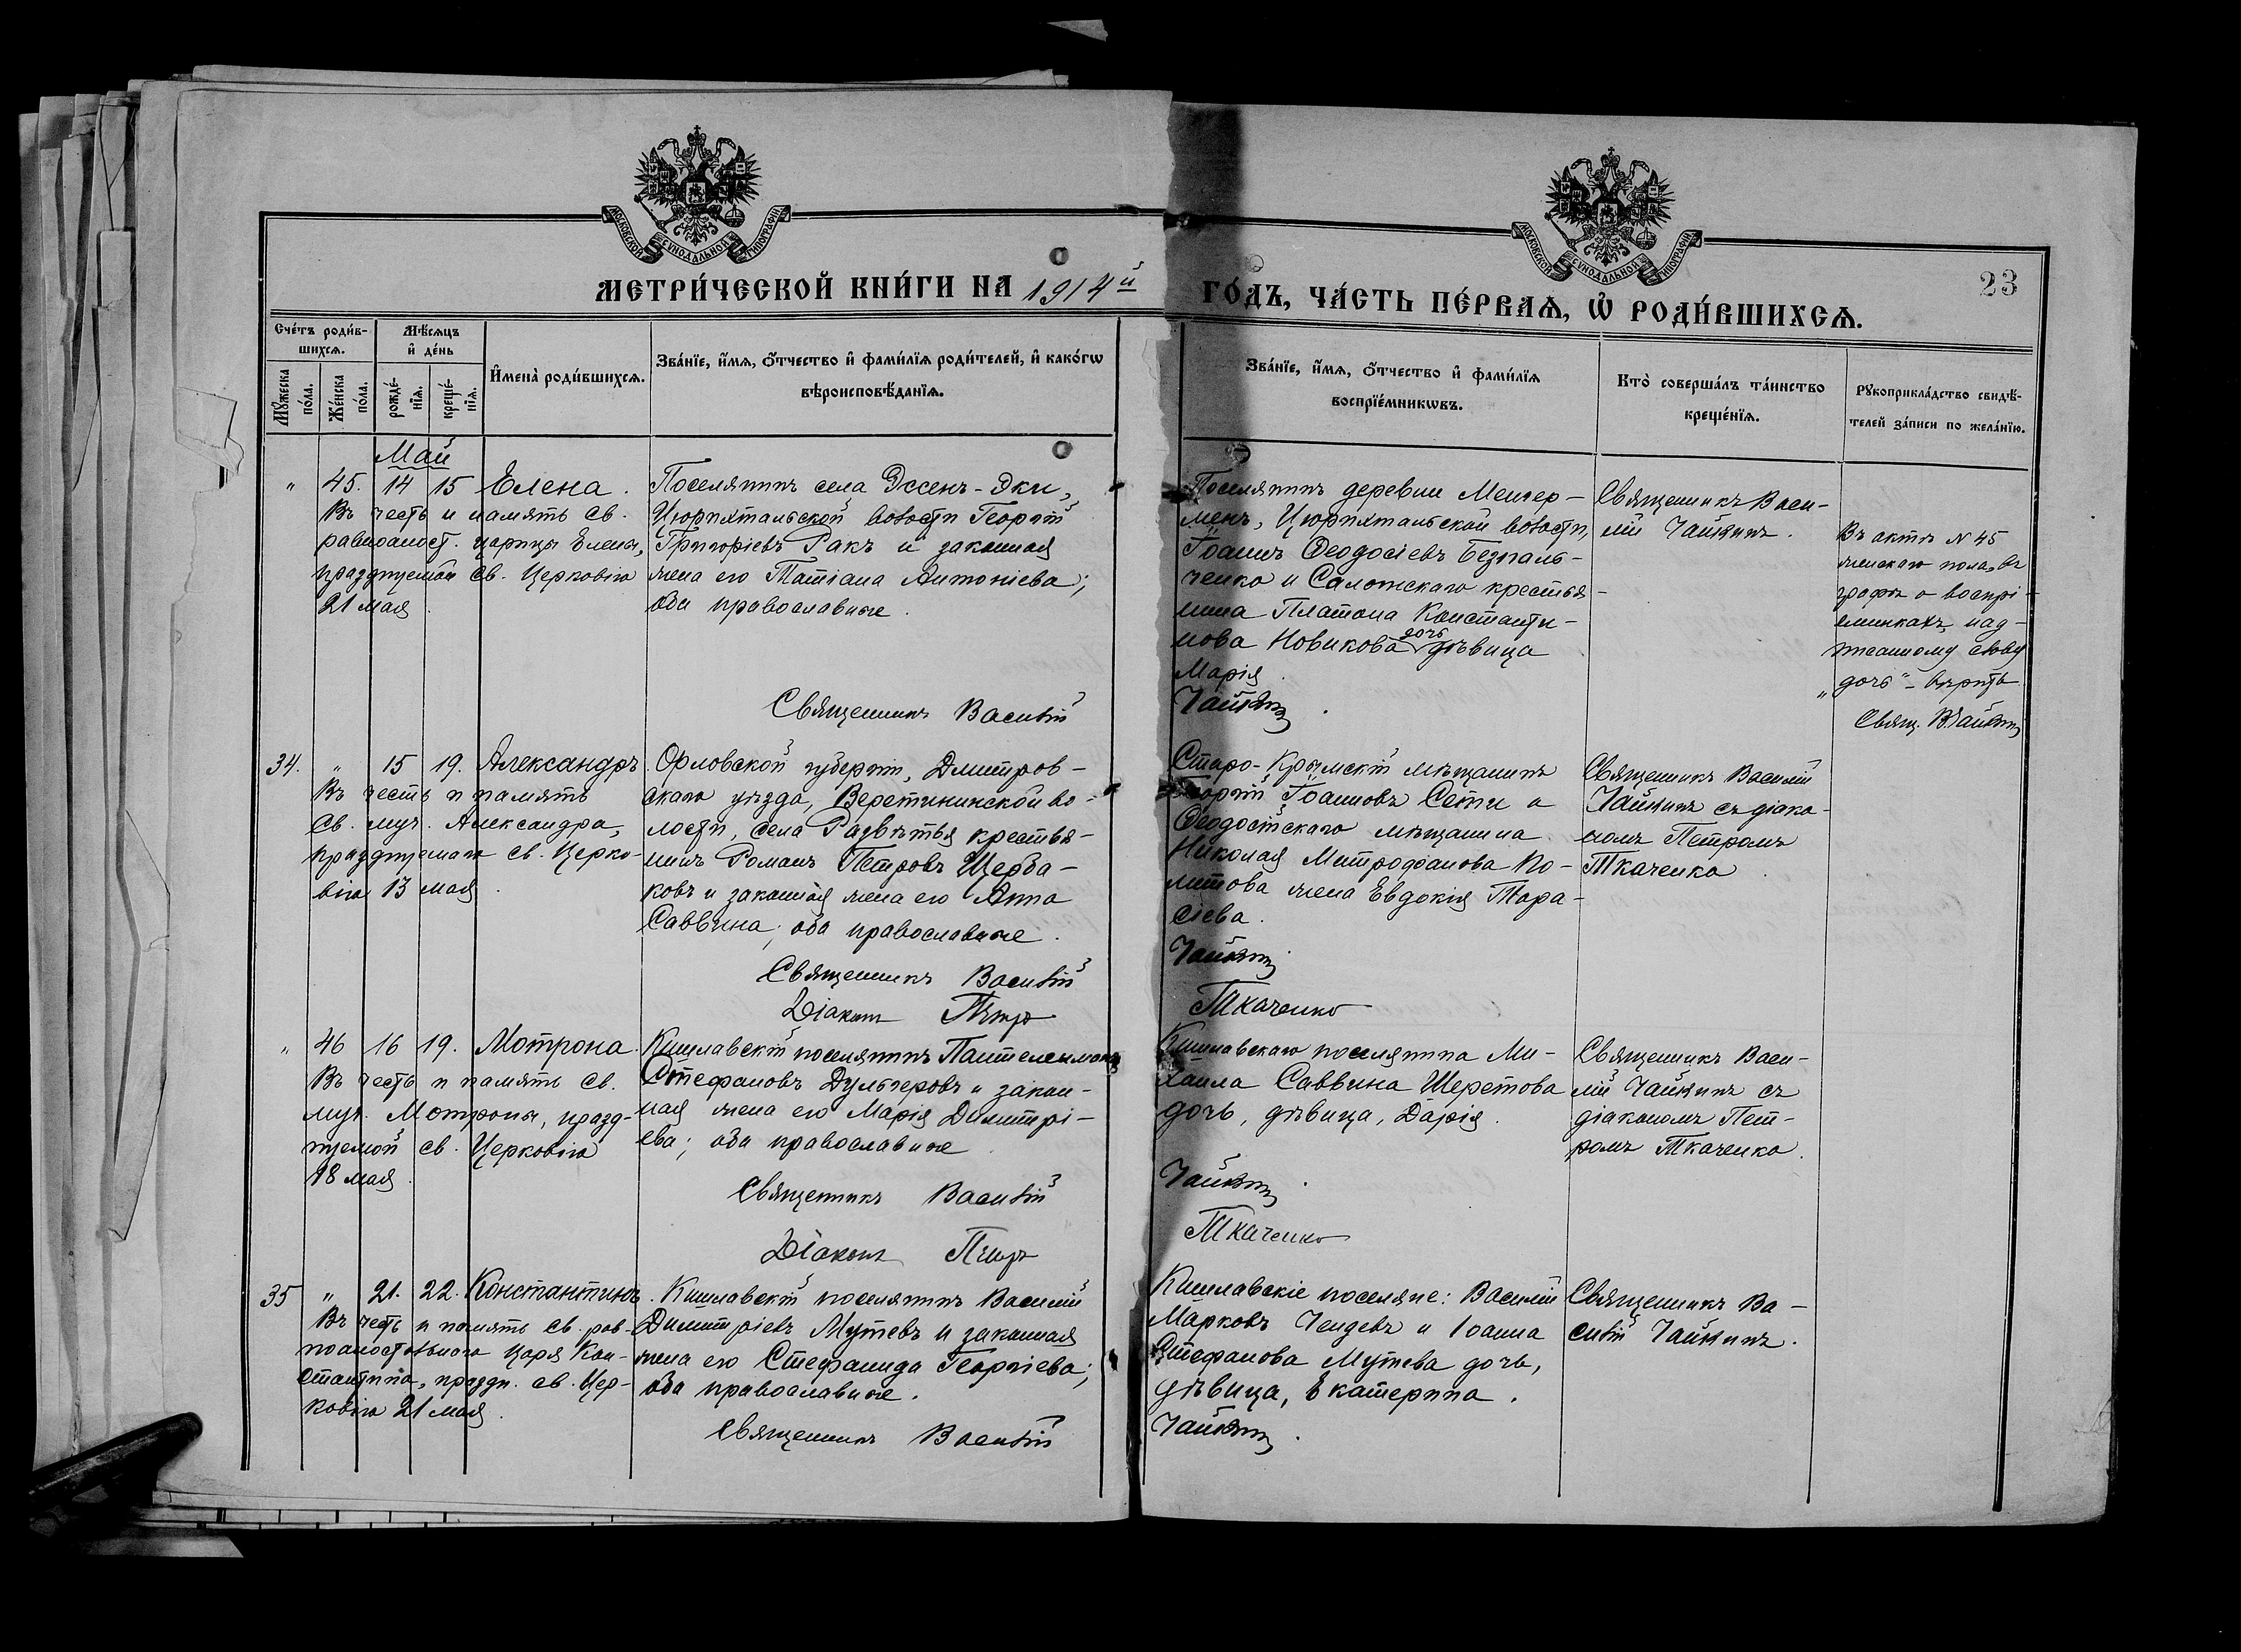 МОСКОВСКОЙ СУНОДАЛЬНОЙ ТИПОГРАФІИ
МОСКОВСКОЙ СУНОДАЛЬНОЙ ТИПОГРАФІИ
МЕТРИ́ЧЕСКОЙ КНИ́ГИ НА 1914й
ГО́ДЪ, ЧА́СТЬ ПЕ́РВАѦ, Ѽ РОДИ́ВШИХСѦ.
23
Сче́тъ роди́в-
шихсѧ.
Мꙋ́жеска
по́ла.
Же́нска
по́ла.
Мѣ́сѧцъ
и҆ де́нь
рожде́-
нїѧ.
креще́-
нїѧ.
И҆мена̀ роди́вшихсѧ.
Зва́нїе, и҆́мѧ, ѻ҆́тчество и҆ фами́лїѧ роди́телей, и҆ како́гѡ
вѣроисповѣ́данїѧ.
Зва́нїе, и҆́мѧ, ѻ҆́тчество и҆ фами́лїѧ
воспрїе́мникѡвъ.
Кто̀ соверша́лъ та́инство
креще́нїѧ.
Рꙋкоприкла́дство свидѣ́-
телей за́писи по жела́нїю.
Май
" 45. 14 15 Елена.
Въ честь и память св.
равноапост. царицы Елены,
празднуемой св. Церковію
21 мая.
Поселянинъ села Эссенъ-Эки,
Цюрихтальской волости Георгій
Григоріевъ Ракъ и законная
жена его Татіана Антоніева;
оба православные.
Священникъ Василій
Поселянинъ деревни Менгер-
менъ, Цюрихтальской волости,
Іоаннъ Ѳеодосіевъ Безпаль-
ченко и крестья-
нина Платона Константи-
нова Новикова дочь дѣвица
Марія.
Чайкинъ.
Священникъ Васи-
лій Чайкинъ.
Въ актѣ №45
женскаго пола, въ
графѣ о воспрі-
емникахъ, над-
писанному слову
"дочь" - вѣрить
Свящ. В. Чайкинъ
34. " 15 19. Александръ.
Въ честь и память
св. муч. Александра,
празднуемаго св. Церко-
вію 13 мая.
Орловской губерніи, Дмитров-
скаго уѣзда, Веретининской во-
лости, села Развѣтья крестья-
нинъ Романъ Петровъ Щерба-
ковъ и законная жена его Анна
Саввина; оба православные.
Священникъ Василій
Діаконъ Петръ
Старо-Крымскій мѣщанинъ
Георгій Іоанновъ Сети и
Ѳеодосійскаго мѣщанина
Николая Митрофанова По-
литова жена Евдокія Тара-
сіева.
Чайкинъ.
Ткаченко
Священникъ Василій
Чайкинъ съ діако-
номъ Петромъ
Ткаченко.
" 46 16 19. Мотрона.
Въ честь и память св.
муч. Мотроны, празд-
нуемой св. Церковію
18 мая.
Кишлавскій поселянинъ Пантелеимонъ
Стефановъ Дульгеровъ и закон-
ная жена его Марія Димитрі-
ева; оба православные
Священникъ Василій
Діаконъ Петръ
Кишлавскаго поселянина Ми-
хаила Саввина Шеретова
дочь, дѣвица, Дарія.
Чайкинъ.
Ткаченко
Священникъ Васи-
лій Чайкинъ съ
діакономъ Пет-
ромъ Ткаченко.
35 " 21. 22. Константинъ.
Въ честь и память св. рав-
ноапостольнаго царя Кон-
стантина, праздн. св. Цер-
ковію 21 мая.
Кишлавскій поселянинъ Василій
Димитріевъ Мутевъ и законная
жена его Стефанида Георгіева;
оба православные.
Священникъ Василій
Кишлавскіе поселяне: Василій
Марковъ Чендевъ и Іоанна
Стефанова Мутева дочь,
дѣвица, Екатерина.
Чайкинъ.
Священникъ Ва-
силій Чайкинъ.